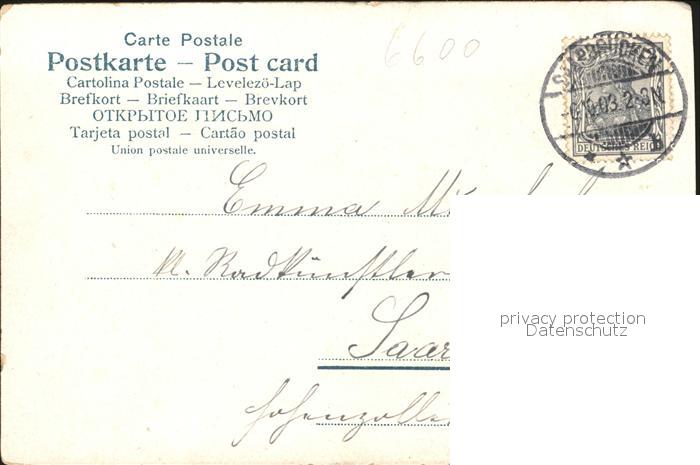 Carte Postale
Postkarte – Post card
Cartolina Postale – Levelezö-Lap
Brefkort – Briefkaart – Brevkort
ОТКРЫТОЕ ПИСЬМО
Tarjeta postal – Cartão postal
Union postale universelle.
6600
SAARBRÜCKEN
.03. 2-3N
DEUTSCHES REICH
Emma
kl. Radkünstler
Saar
Hohenzolle
privacy protection
Datenschutz